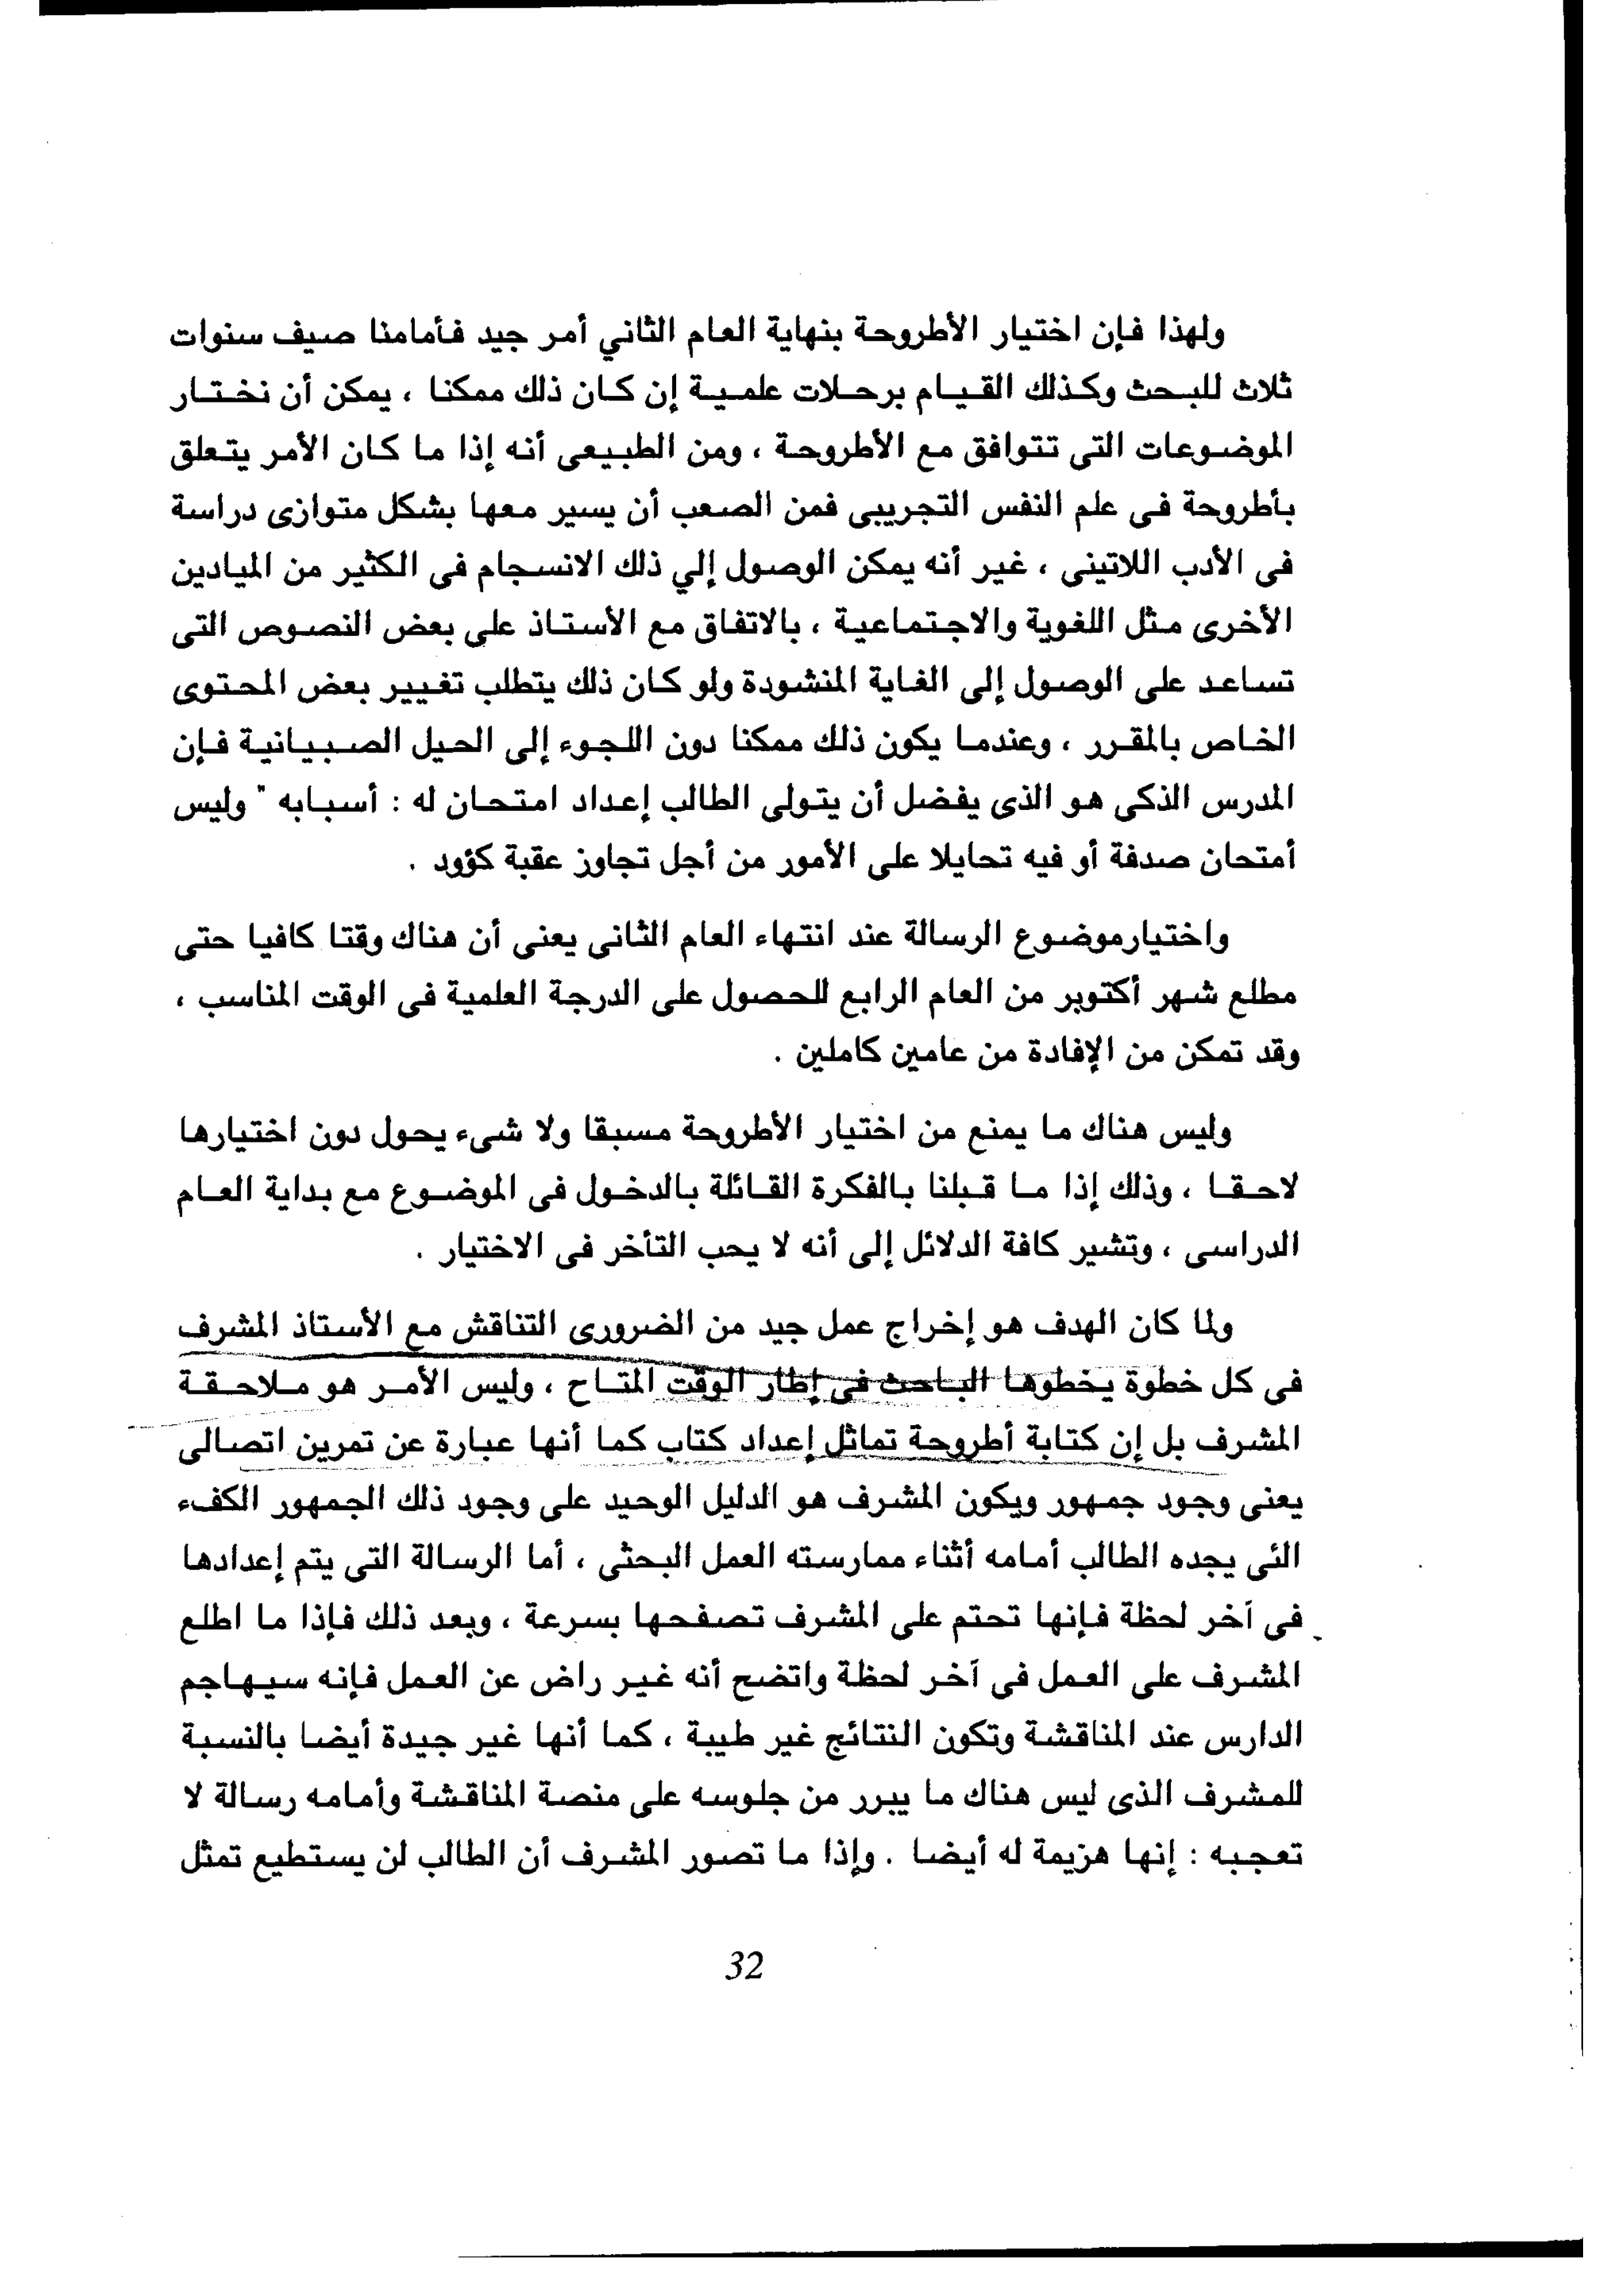 ولهذا فإن اختيار الأطروحة بنهاية العام الثاني أمر جيد فأمامنا صيف سنوات
ثلاث للبحث وكذلك القيام برحلات علمية إن كان ذلك ممكنا ، يمكن أن نختار
الموضوعات التى تتوافق مع الأطروحة ، ومن الطبيعى أنه إذا ما كان الأمر يتعلق
بأطروحة فى علم النفس التجريبى فمن الصعب أن يسير معها بشكل متوازى دراسة
فى الأدب اللاتينى ، غير أنه يمكن الوصول إلي ذلك الانسجام فى الكثير من الميادين
الأخرى مثل اللغوية والاجتماعية ، بالاتفاق مع الأستاذ على بعض النصوص التى
تساعد على الوصول إلى الغاية المنشودة ولو كان ذلك يتطلب تغيير بعض المحتوى
الخاص بالمقرر ، وعندما يكون ذلك ممكنا دون اللجوء إلى الحيل الصبيانية فإن
المدرس الذكى هو الذى يفضل أن يتولى الطالب إعداد امتحان له : أسبابه " وليس
أمتحان صدفة أو فيه تحايلا على الأمور من أجل تجاوز عقبة كؤود .
واختيارموضوع الرسالة عند انتهاء العام الثانى يعنى أن هناك وقتا كافيا حتى
مطلع شهر أكتوبر من العام الرابع للحصول على الدرجة العلمية فى الوقت المناسب ،
وقد تمكن من الإفادة من عامين كاملين .
وليس هناك ما يمنع من اختيار الأطروحة مسبقا ولا شىء يحول دون اختيارها
لاحقا ، وذلك إذا ما قبلنا بالفكرة القائلة بالدخول فى الموضوع مع بداية العام
الدراسى ، وتشير كافة الدلائل إلى أنه لا يحب التأخر فى الاختيار .
ولما كان الهدف هو إخراج عمل جيد من الضرورى التناقش مع الأستاذ المشرف
فى كل خطوة يخطوها الباحث فى إطار الوقت المتاح ، وليس الأمر هو ملاحقة
المشرف بل إن كتابة أطروحة تماثل إعداد كتاب كما أنها عبارة عن تمرين اتصالى
يعنى وجود جمهور ويكون المشرف هو الدليل الوحيد على وجود ذلك الجمهور الكفء
الئى يجده الطالب أمامه أثناء ممارسته العمل البحثى ، أما الرسالة التى يتم إعدادها
فى آخر لحظة فإنها تحتم على المشرف تصفحها بسرعة ، وبعد ذلك فإذا ما اطلع
المشرف على العمل فى آخر لحظة واتضح أنه غير راض عن العمل فإنه سيهاجم
الدارس عند المناقشة وتكون النتائج غير طيبة ، كما أنها غير جيدة أيضا بالنسبة
للمشرف الذى ليس هناك ما يبرر من جلوسه على منصة المناقشة وأمامه رسالة لا
تعجبه : إنها هزيمة له أيضا . وإذا ما تصور المشرف أن الطالب لن يستطيع تمثل
32